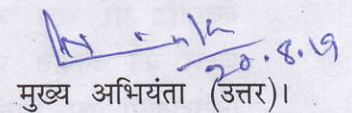 20.8.19
मुख्य अभियंता (उत्तर)।